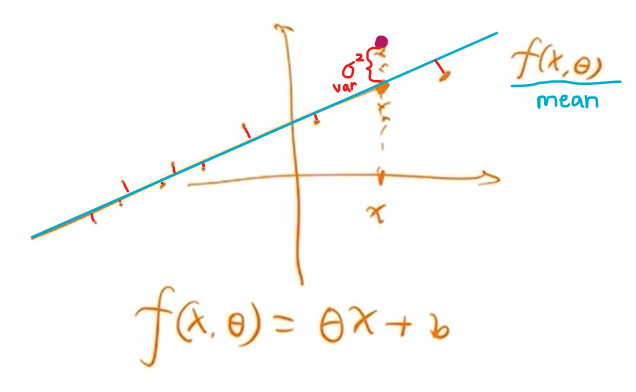 σ²
var
f(x,θ)
mean
x
f(x,θ) = θx + b